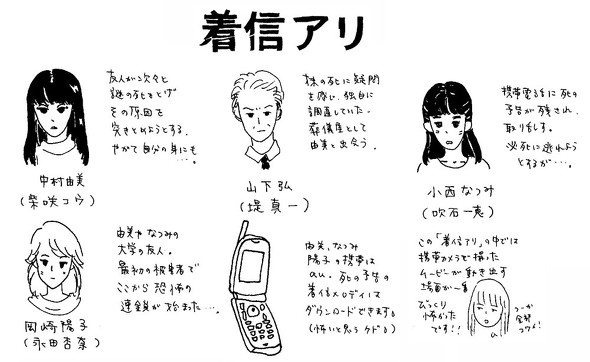 着信アリ
友人が次々と
謎の死をとげ
その原因を
突きとめようとする。
やがて自分の身にも
…。
中村由美
(柴咲コウ)
妹の死に疑問
を感じ、独自に
調査していた。
葬儀屋として
由美と出会う。
山下弘
(堤真一)
携帯電話に死の
予告が残され、
取り乱す。
必死に逃れよう
とするが…。
小西なつみ
(吹石一恵)
由美やなつみの
大学の友人。
最初の被害者で
ここから恐怖の
連鎖が始まった…。
岡崎陽子
(永田杏奈)
由美、なつみ
陽子の携帯は
au。死の予告の
着信メロディは
ダウンロードできます
(怖いと思うケドネ)
この「着信アリ」の中では
携帯カメラで撮った
ムービーが動き出す
場面が一番
びっくり
怖かった
です!!
つーか
全部
コワイ!